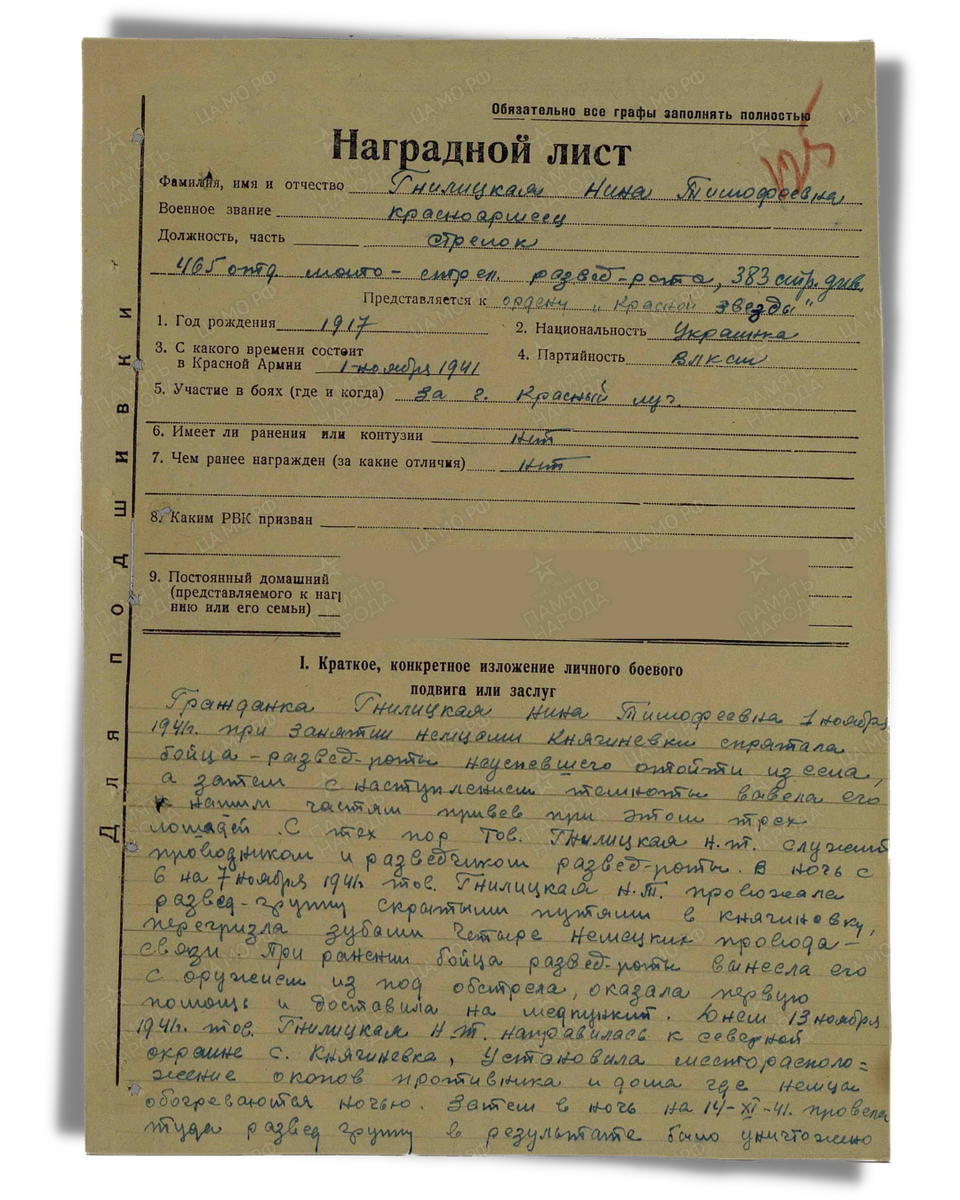 Обязательно все графы заполнять полностью
125
Наградной лист
Фамилия, имя и отчество Гнилицкая Нина Тимофеевна
Военное звание красноармеец
Должность, часть стрелок
465 отд мото-стрел. развед-рота, 383 стр. див.
Представляется к ордену „Красной звезды"
1. Год рождения 1917
2. Национальность Украинка
3. С какого времени состоит
в Красной Армии 1 ноября 1941
4. Партийность ВЛКСМ
5. Участие в боях (где и когда) За г. Красный луч.
6. Имеет ли ранения или контузии нет
7. Чем ранее награжден (за какие отличия) нет
8. Каким РВК призван
9. Постоянный домашний
(представляемого к наг
нию или его семьи)
I. Краткое, конкретное изложение личного боевого
подвига или заслуг
Гражданка Гнилицкая Нина Тимофеевна 1 ноября
1941г. при занятии немцами Княгиневки спрятала
бойца-развед-роты неуспевшего отойти из села,
а затем с наступлением темноты вывела его
к нашим частям привев при этом трех
лошадей. С тех пор Тов. Гнилицкая Н.Т. служит
проводником и разведчиком развед-роты. В ночь с
6 на 7 ноября 1941г. тов. Гнилицкая Н.Т. провожала
развед-группу скрытыми путями в Княгиновку,
перегризла зубами четыре немецких провода-
связи. При ранении бойца развед-роты вынесла его
с оружием из под обстрела, оказала первую
помощь и доставила на медпункт. Днем 13 ноября
1941г. тов. Гнилицкая Н.Т. направилась к северной
окраине с. Княгиневка, установила месторасполо=
жение окопов противника и дома где немцы
обогреваются ночью. Затем в ночь на 14-XI-41. провела
туда развед группу в результате было уничтожено
Для подшивки
ПАМЯТЬ НАРОДА
ЦАМО.РФ